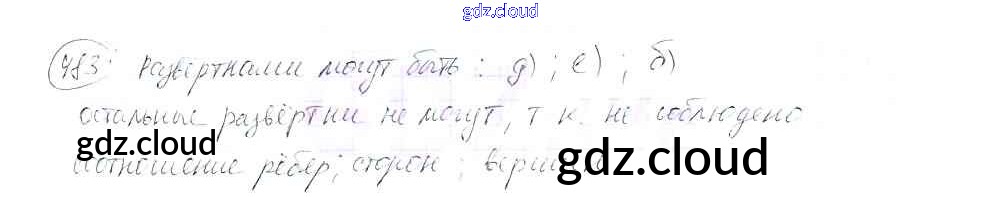 gdz.cloud
483 Развёртками могут быть: д); е); б)
остальные развёртки не могут, т к. не соблюдено
gdz.cloud
соотношение рёбер; сторон;
gdz.cloud